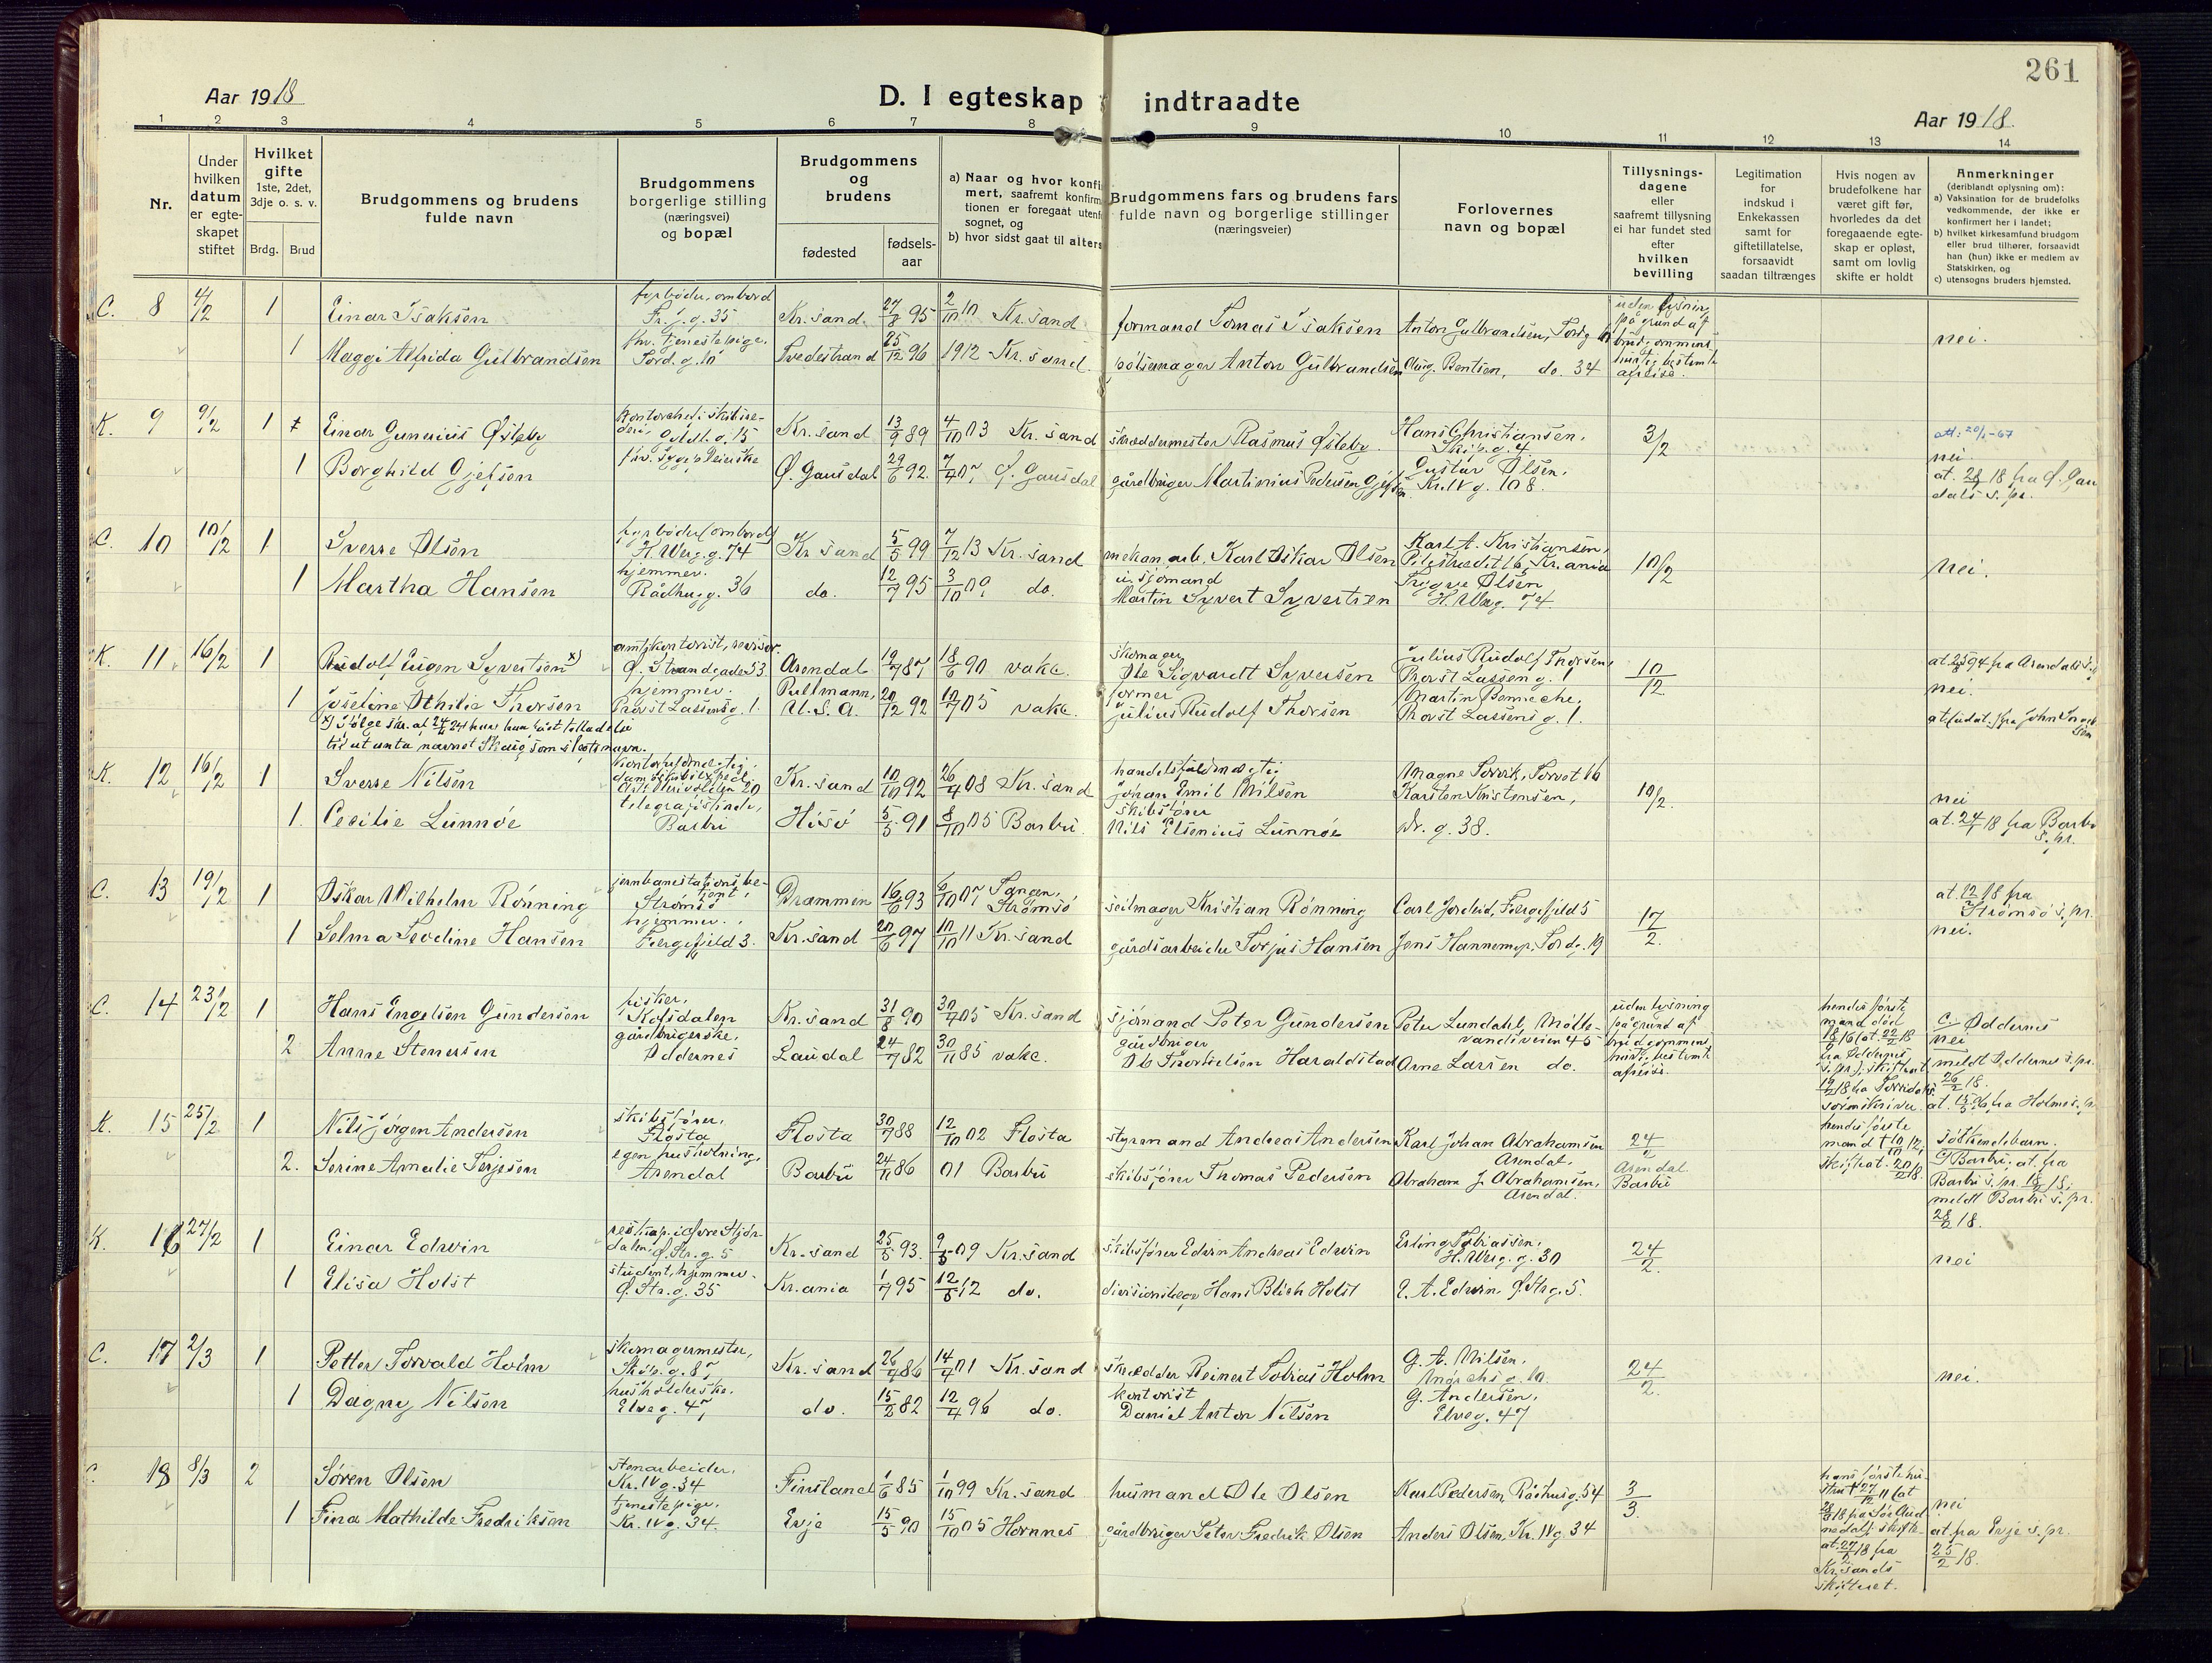 261
Aar 1918
D. I egteskap indtraadte
Aar 1918.
1 2 3 4 5 6 7 8 9 10 11 12 13 14
Nr.
Under hvilken datum er egteskapet stiftet
Hvilket gifte 1ste, 2det, 3dje o. s. v.
Brdg. Brud
Brudgommens og brudens fulde navn
Brudgommens borgerlige stilling (næringsvei) og bopæl
Brudgommens og brudens
fødested
fødsels-aar
a) Naar og hvor konfi
mert, saafremt konfirm
tionen er foregaat utenf
sognet, og
b) hvor sidst gaat til alters
Brudgommens fars og brudens fars
fulde navn og borgerlige stillinger
(næringsveier)
Forlovernes
navn og bopæl
Tillysnings-
dagene
eller
saafremt tillysning
ei har fundet sted
efter
hvilken
bevilling
Legitimation
for
indskud i
Enkekassen
samt for
giftetillatelse,
forsaavidt
saadan tiltrænges
Hvis nogen av
brudefolkene har
været gift før,
hvorledes da det
foregaaende egte-
skap er opløst,
samt om lovlig
skifte er holdt
Anmerkninger
(deriblandt oplysning om):
a) Vaksination for de brudefolks
vedkommende, der ikke er
konfirmert her i landet;
b) hvilket kirkesamfund brudgom
eller brud tilhører, forsaavidt
han (hun) ikke er medlem av
Statskirken, og
c) utensogns bruders hjemsted.
C. 8 4/2 1 Einar Isaksen fyrbøder, ombord 35 Kr.sand. 27/8 95 2/10 10 Kr.sand formand Tomas Isaksen Anton Gulbrandsen, nei.
1 Maggi Alfrida Gulbrandsen fhv. tjenestepige. Tord.g. 10 Tvedestrand 25/12 96 1912 Kr.sand. Anton Gulbrandsen Aug. Bentsen, do. 34
uden lysning på grund af brudgommens hurtig bestemte afreise.
K. 9 9/2 1 Einar Gunerius Østeby Kr.sand 13/9 89 4/10 03 Kr.sand skræddermester Rasmus Østeby. Hans Christiansen, Skip.g. 4 3/2 att: 20/1-67 nei.
1 Borghild Gjefsen fhv. sygepleierske Ø. Gausdal 29/6 92. 7/7 07, Ø. Gausdal gårdbruger Martinius Pedersen Gjefsen. Gustav Olsen, Kr. IV g. 108. at. 28/1 18 fra Ø. Gausdals s.pr.
C. 10 10/2 1 Sverre Olsen fyrbøder (ombord) H. Werg.g. 74 Kr.sand 5/5 99 7/12 13 Kr.sand mekan.arb. Karl Oskar Olsen Karl A. Kristiansen, Pilestrædet 16, Kr.ania 10/2 nei.
1 Martha Hansen hjemmev. Rådhusg. 36 do. 12/7 95 3/10 09, do. u. sjømand Martin Syvert Syvertsen Trygve Olsen H. Werg. 74
K. 11 16/2 1 Rudolf Eugen Syvertsen x) amtskontorist, revisor. Ø. Strandgade 53 Arendal 19/7 87 18/6 90 vakc. skomager Ole Sigvardt Syversen Julius Rudolf Thorsen, Provst Lassens g. 1 10/12 nei.
1 Joseline Othilie Thorsen hjemmev. Provst Lassensg. 1. Pullmann, U.S.A. 20/12 92 10/7 05 vakc. former Julius Rudolf Thorsen Martin Bernieche, Provst Lassens g. 1.
x) Ifølge skr. af har han faat tilladelse
til at anta navnet Skaug som slegtsnavn.
K. 12 16/2 1 Sverre Nilsen kontorfuldmægtig, Artillerivolden 20 Kr.sand 10/10 92 26/4 08 Kr.sand handelsfuldmægtig Johan Emil Nilsen Magne Torvik, Torvet 16 10/2. nei
1. Cecilie Lunnøe telegrafistinde, Barbu Hisø 5/5 91 8/10 05 Barbu. skibsfører Nils Elsenius Lunnøe Karsten Kristensen, Dr. g. 38. at. 24/1 18 fra Barbu s.pr.
C. 13 19/2 1 Oskar Wilhelm Rønning jernbanestationsbetjent, Strømsø Drammen 16/6 93 6/10 07, Tangen, Strømsø seilmager Kristian Rønning Carl Jordeid, Færgefjeld 5 17/2. at. 12/2 18 fra Strømsø s.pr.
1 Selma Teodine Hansen hjemmev. Færgefjeld 3. Kr.sand 20/6 97 10/10 11 Kr.sand gårdsarbeider Torjus Hansen Jens Hannemyr, Tord.g. 19 nei.
C. 14 23/2 1 Hans Engelsen Gundersen fisker, Kolsdalen Kr.sand 31/8 90 30/4 05 Kr.sand sjømand Peter Gundersen Peter Lundahl, Møllevandsveien 45 C/ Oddernes nei
2 Anne Stenersen gårdbrugerske, Oddernes Laudal 24/7 82 30/11 85 vakc. gårdbruger Ole Thorkielsen Haraldstad Arne Larsen do. meldt Oddernes s.pr. 26/2 18.
uden lysning på grund af brudgommens hurtig bestemte afreise.
hendes første mand død 18/9 16 (at. 22/2 18 fra Oddernes s.pr.); skifteat. 19/2 18 fra Torridals sorenskriver.
K. 15 25/2 1 Nils Jørgen Andersen skibsfører, Flosta Flosta 30/7 88 12/10 02 Flosta styrmand Andreas Andersen Karl Johan Abrahamsen Arendal, 24/2 Arendal Barbu
2. Serine Amalie Terjesen egen husholdning, Arendal Barbu 24/11 86 01 Barbu skibsfører Thomas Pedersen Abraham J. Abrahamsen, Arendal.
hendes første mand † skifteat. 20/2 18.
Søskendebarn. C/ Barbu; at. fra Barbu s.pr. 18/2 18; meldt Barbu s.pr. 28/2 18.
K. 16 27/2 1 Einar Edwin Ø. Str.g. 5 Kr.sand 25/5 93. 9/5 09 Kr.sand skibsfører Edvin Andreas Edwin Erling Tobiassen, H. Werg.g. 30 24/2. nei
1 Elisa Holst student, hjemmev. Ø. Str.g. 35 Kr.ania 1/7 95 12/5 12 do. divisionslæge Hans Blich Holst E. A. Edwin Ø. Strg. 5.
C. 17 2/3 1 Petter Torvald Holm skomagermester, Skip.g. 8, Kr.sand 26/4 86 14/4 01 Kr.sand skrædder Reinert Tobias Holm G. A. Nilsen, 24/2. nei.
1 Dagny Nilsen husholderske, Elveg. 47, do. 15/2 82 12/4 96 do. kontorist Daniel Anton Nilsen G. Andersen, Elveg. 47
C. 18 8/3 2 Søren Olsen stenarbeider, Kr. IV g. 34 Finsland 1/6 85 1/10 99 Kr.sand husmand Ole Olsen Karl Pedersen, Rådhusg. 54 3/3. nei
1 Fina Mathilde Fredriksen tjenestepige, Kr. IV g. 34. Evje 15/5 90 15/10 05 Hornnes gårdbruger Peter Fredrik Olsen Anders Olsen, Kr. IV g. 34 at. fra Evje s.pr. 25/2 18.
hans første hustru † 27/12 11 (at. skifteat. 27/2 18 fra Kr.sands skifteret.